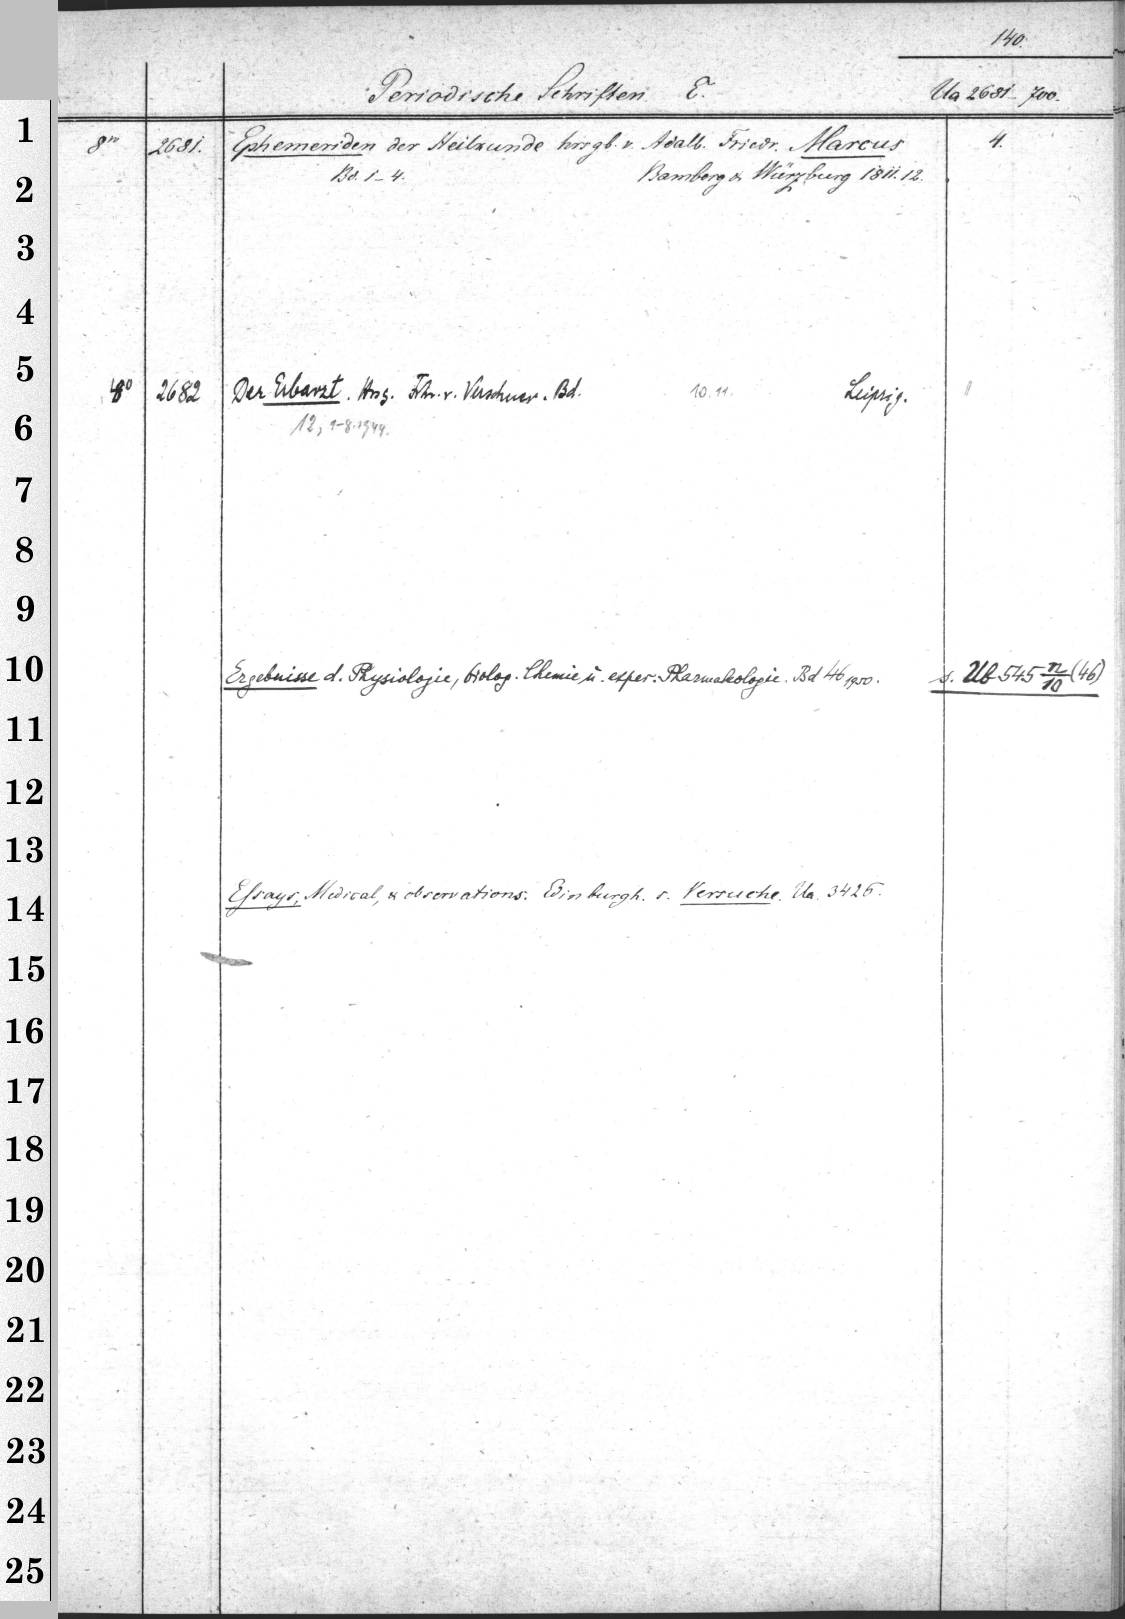 140.
Periodische Schriften E. Ua 2681-700.
1 8° 2681. Ephemeriden der Heilkunde hrsgb. v. Adalb. Friedr. Marcus 4.
2 Bd. 1-4. Bamberg & Würzburg 1811.12.
3
4
5 2682 Der Erbarzt. Hrsg. Frhr. v. Verschuer. Bd. 10.11. Leipzig. "
6 12, 1-8.1944.
7
8
9
10 Ergebnisse d. Physiologie, biolog. Chemie u. exper. Pharmakologie. Bd 46 1950. s. Ub 545 n/10 (46)
11
12
13
14 Essays, Medical, & observations. Edinburgh. s. Versuche. Ua. 3425.
15
16
17
18
19
20
21
22
23
24
25